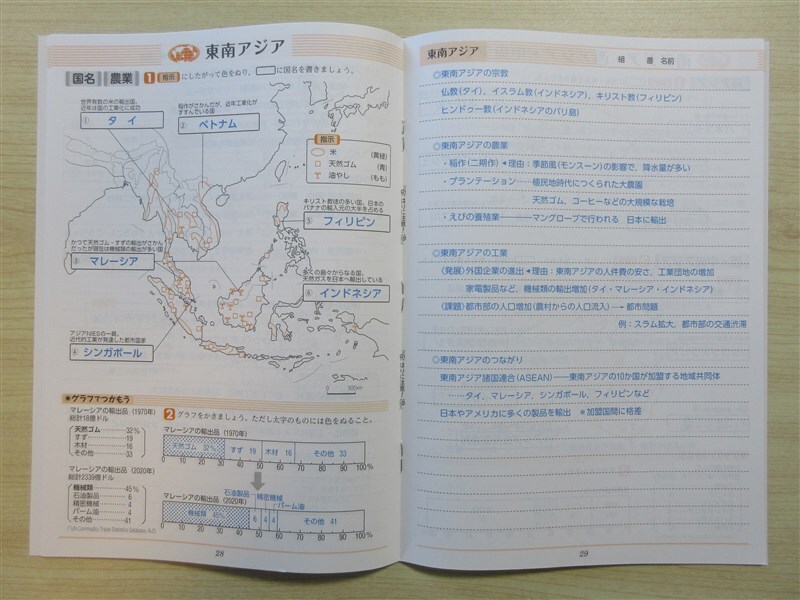 東南アジア
国名 農業 1 指示 にしたがって色をぬり、□に国名を書きましょう。
世界有数の米の輸出国。
近年は国の工業化に成功
① タイ
稲作がさかんだが、近年工業化が
すすんでいる国
② ベトナム
指示
米 (黄緑)
天然ゴム (青)
油やし (もも)
キリスト教徒の多い国。日本の
バナナの輸入元の大半を占める
⑤ フィリピン
かつて天然ゴム・すずの輸出がさかん
だったが現在は機械類の輸出が多い国
③ マレーシア
多くの島々からなる国。
天然ガスを日本へ輸出している
⑥ インドネシア
アジアNIESの一員。
近代的工業が発達した都市国家
④ シンガポール
0 500km
グラフでつかもう
マレーシアの輸出品(1970年)
総計18億ドル
天然ゴム 32%
すず 19
木材 16
その他 33
マレーシアの輸出品(2020年)
総計2339億ドル
機械類 45%
石油製品 6
精密機械 4
パーム油 4
その他 41
2 グラフをかきましょう。ただし太字のものには色をぬること。
マレーシアの輸出品(1970年)
天然ゴム 32% すず 19 木材 16 その他 33
0 10 20 30 40 50 60 70 80 90 100%
石油製品 精密機械
パーム油
マレーシアの輸出品(2020年)
機械類 45% 6 4 4 その他 41
0 10 20 30 40 50 60 70 80 90 100%
28
東南アジア
組 番 名前
◎東南アジアの宗教
仏教(タイ)、イスラム教(インドネシア)、キリスト教(フィリピン)
ヒンドゥー教(インドネシアのバリ島)
◎東南アジアの農業
・稲作(二期作) ◀理由:季節風(モンスーン)の影響で、降水量が多い
・プランテーション……植民地時代につくられた大農園
天然ゴム、コーヒーなどの大規模な栽培
・えびの養殖業――マングローブで行われる 日本に輸出
◎東南アジアの工業
(発展)外国企業の進出◀理由:東南アジアの人件費の安さ、工業団地の増加
家電製品など、機械類の輸出増加(タイ・マレーシア・インドネシア)
(課題)都市部の人口増加(農村からの人口流入)→都市問題
例:スラム拡大、都市部の交通渋滞
◎東南アジアのつながり
東南アジア諸国連合(ASEAN)――東南アジアの10か国が加盟する地域共同体
…タイ、マレーシア、シンガポール、フィリピンなど
日本やアメリカに多くの製品を輸出 ※加盟国間に格差
29